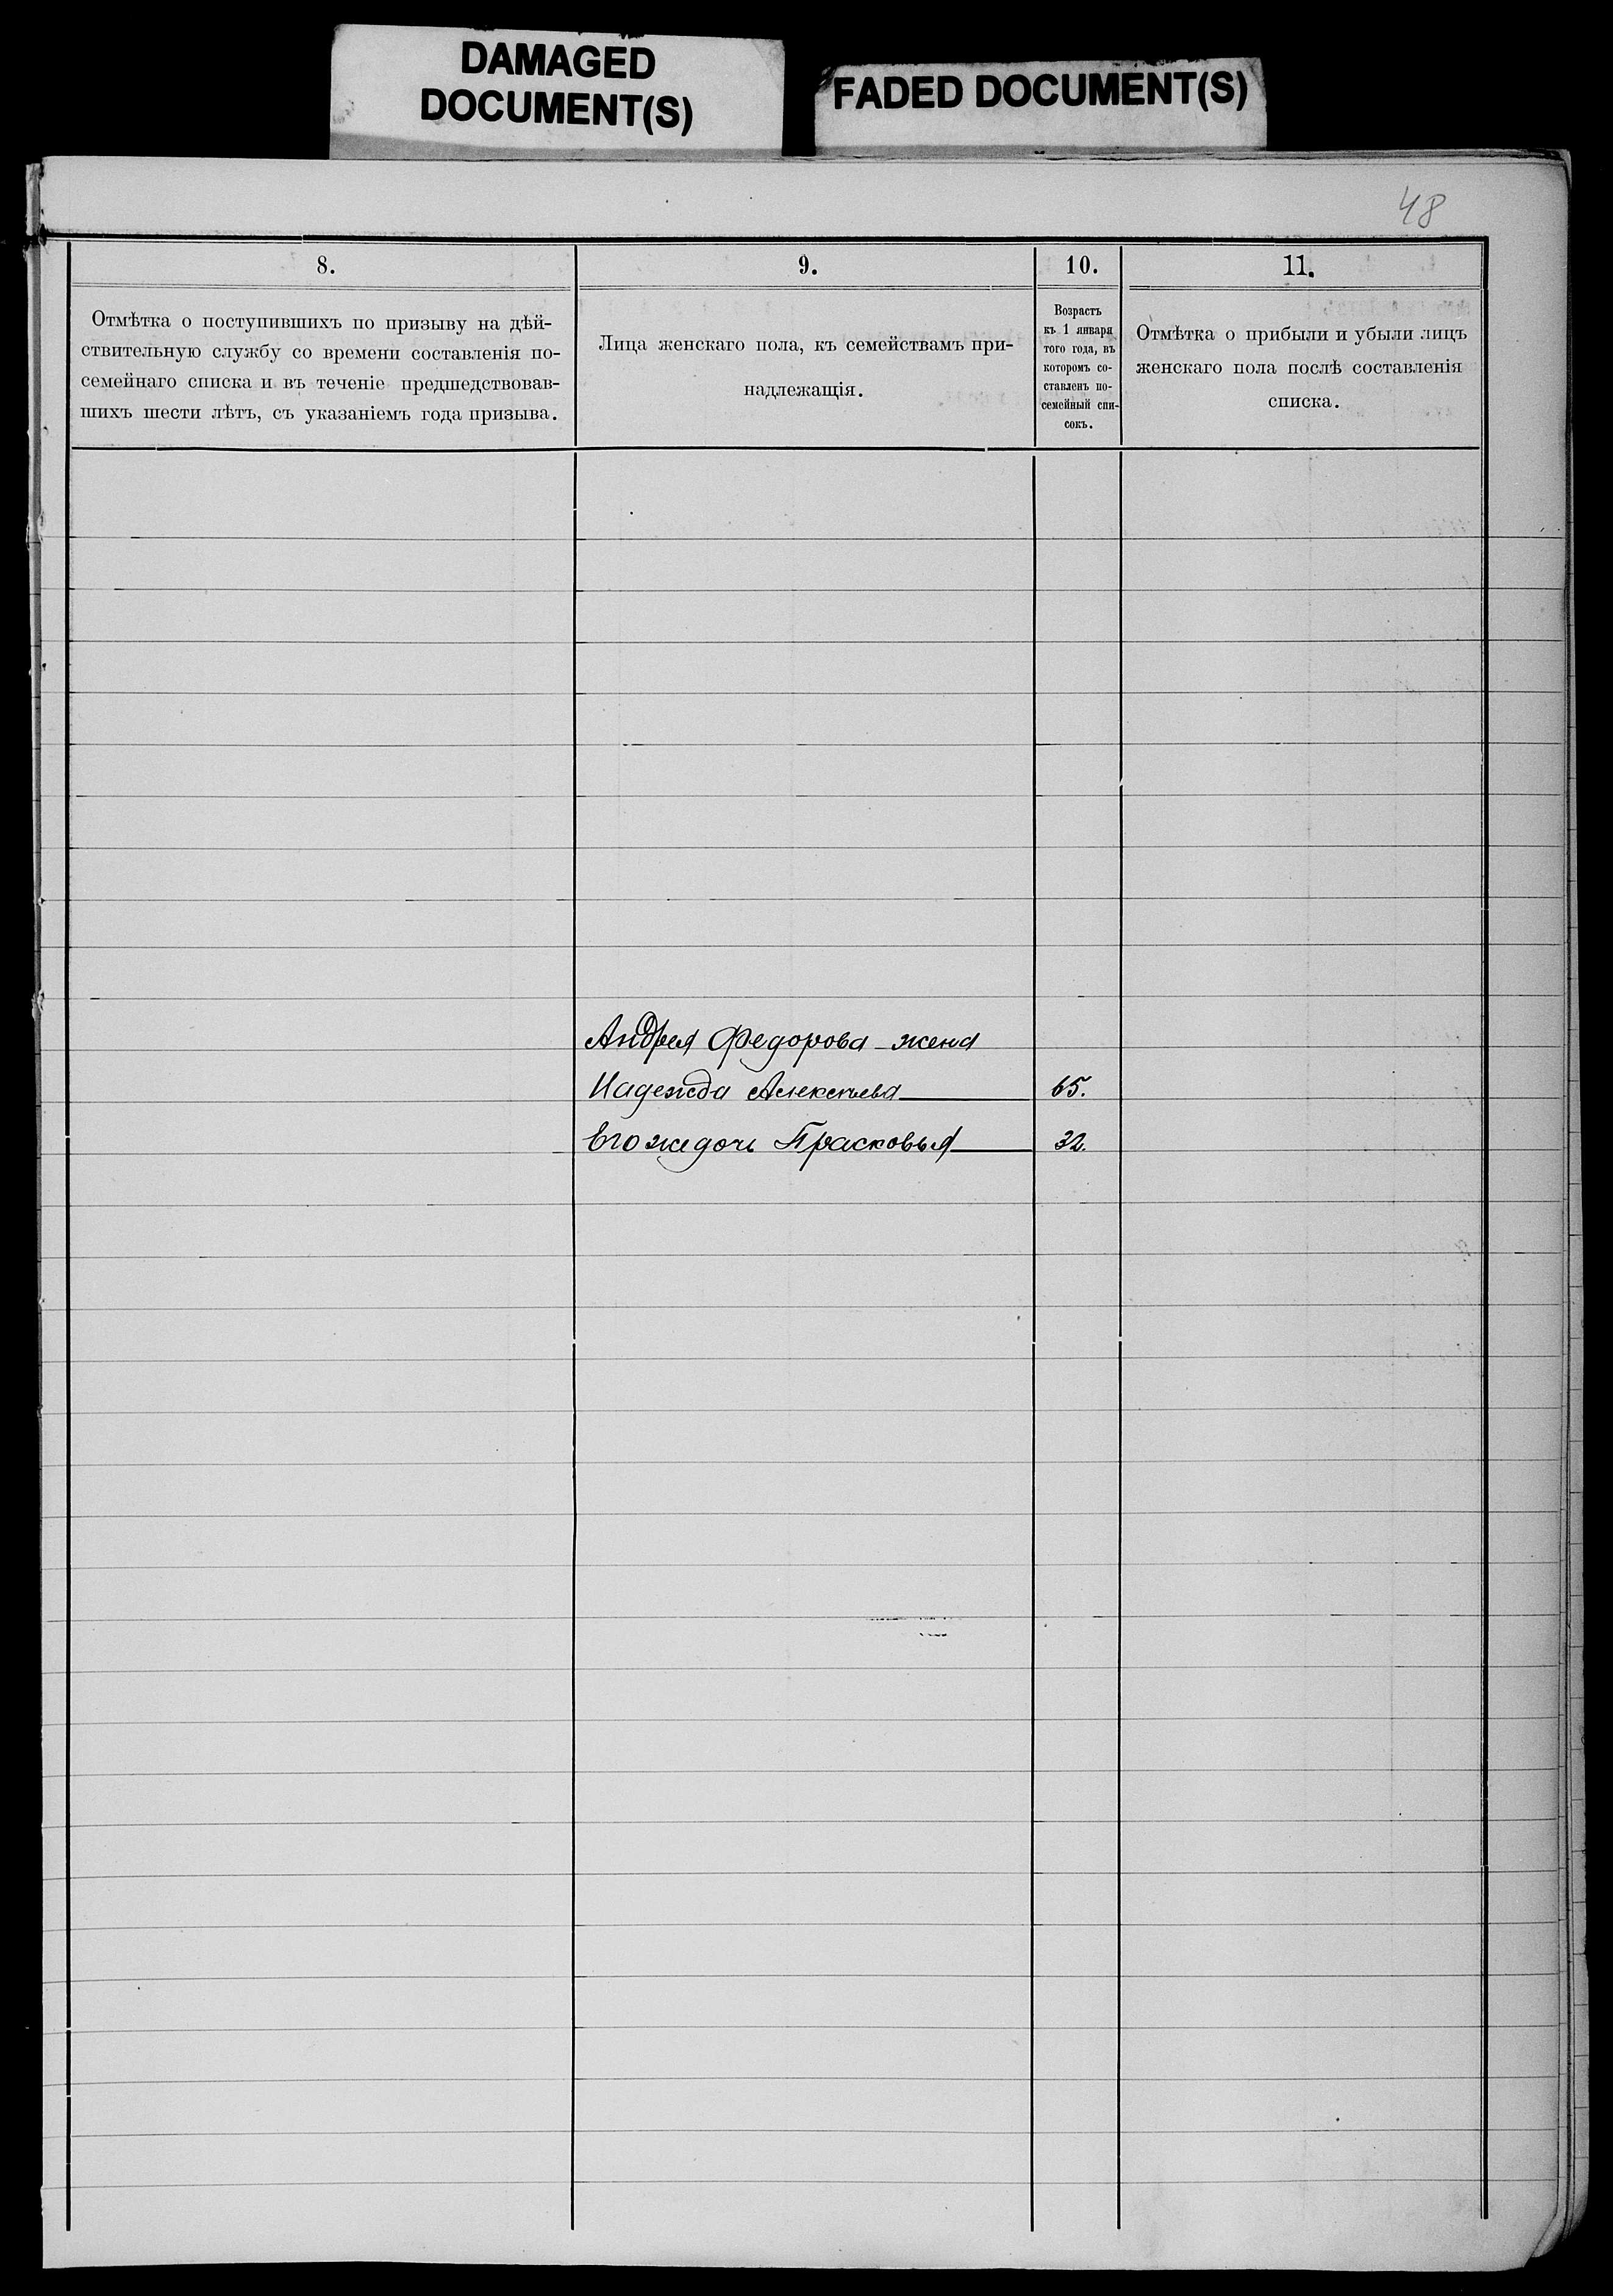 DAMAGED
DOCUMENT(S)
FADED DOCUMENT(S)
48
8.
Отмѣтка о поступившихъ по призыву на дѣй-
ствительную службу со времени составленія по-
семейнаго списка и въ теченіе предшедствовав-
шихъ шести лѣтъ, съ указаніемъ года призыва.
9.
Лица женскаго пола, къ семействамъ при-
надлежащія.
10.
Возрастъ
къ 1 января
того года, въ
которомъ со-
ставленъ по-
семейный спи-
сокъ.
11.
Отмѣтка о прибыли и убыли лицъ
женскаго пола послѣ составленія
списка.
Андрея Федорова жена
Надежда Алексѣева 65.
Его же дочь Прасковья 32.